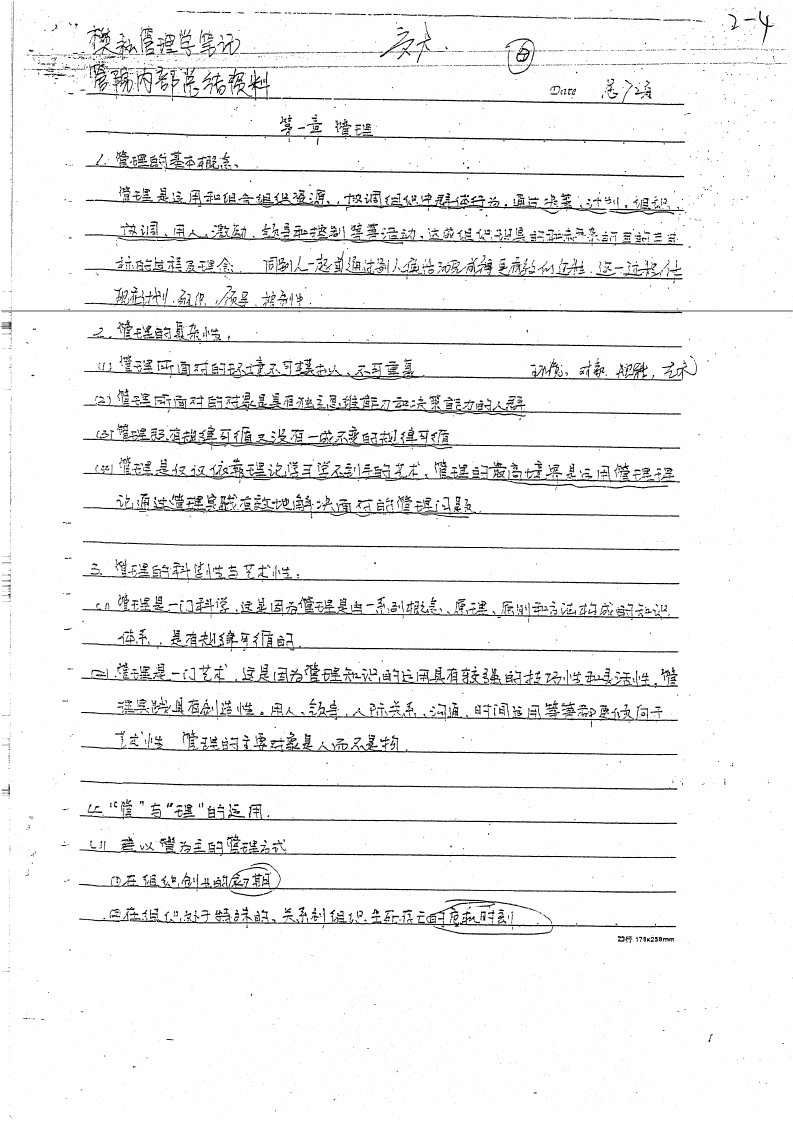 2-4
模私管理学笔记
管院内部总结资料
Date 总72页
第一章 管理
1. 管理的基本概念、
管理是运用和组合组织资源、协调组织中群体行为,通过决策、计划、组织、
协调、用人、激励、领导和控制等等活动,达成组织
标的过程及理念 同别人一起或通过别人使活动完成得更有效的过程,这一过程体
现在计划、组织、领导、控制中.
2. 管理的复杂性:
(1) 管理所面对的环境不可模拟、不可重复 环境、对象、规律、艺术
(2) 管理所面对的对象是具有独立思维能力和决策能力的人群
(3) 管理既有规律可循又没有一成不变的规律可循
(4) 管理是仅仅依靠理论学习学不到手的艺术,管理的最高境界是运用管理理
论通过管理实践有效地解决面对的管理问题
3. 管理的科学性与艺术性:
(1) 管理是一门科学,这是因为管理是由一系列概念、原理、原则和方法构成的知识
体系,是有规律可循的.
(2) 管理是一门艺术,这是因为管理知识的运用具有较强的技巧性和灵活性,管
理实践具有创造性。用人、领导、人际关系、沟通、时间运用等等都更倾向于
艺术性 管理的主要对象是人而不是物.
4. "管"与"理"的运用.
(1) 建以管为主的管理方式
①在组织创业的初期
②在组织处于特殊的、关系到组织生死存亡的危急时刻
23行 178x258mm